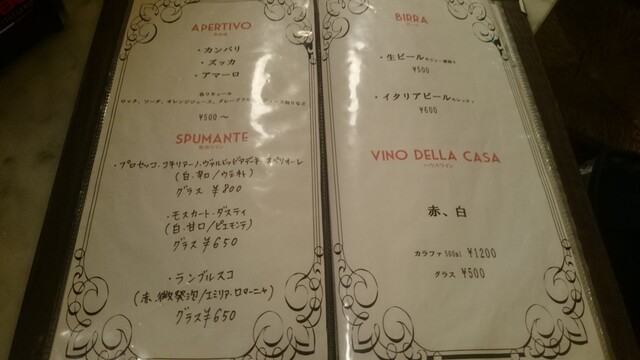 APERTIVO
・カンパリ
・ズッカ
・アマーロ
ロック、ソーダ、オレンジジュース、
¥500～
SPUMANTE
・プロセッコ
(白.辛口/ヴェネト)
グラス ¥800
・モスカート・ダスティ
(白.甘口/ピエモンテ)
グラス¥650
・ランブルスコ
(赤.微発泡/エミリア.ロマーニャ)
グラス¥650
BIRRA
・生ビール
¥500
・イタリアビール
¥600
VINO DELLA CASA
ハウスワイン
赤、白
カラファ 500ml ¥1200
グラス ¥500